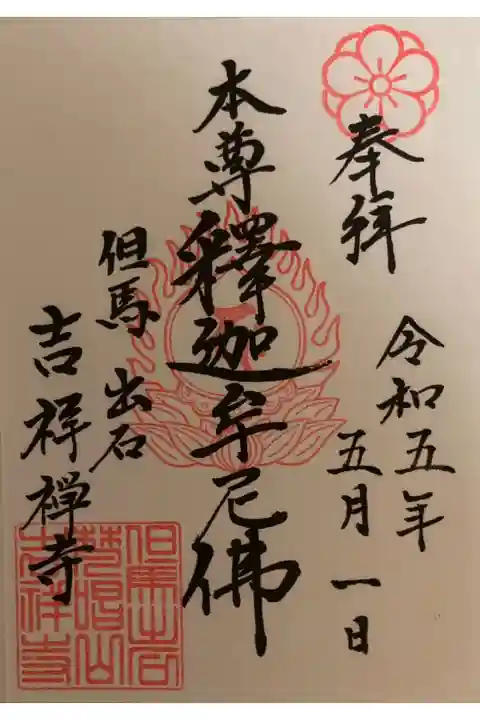 奉拜
令和五年
五月一日
本尊釋迦牟尼佛
但馬 出石
吉祥禅寺
但馬出石
吉祥寺